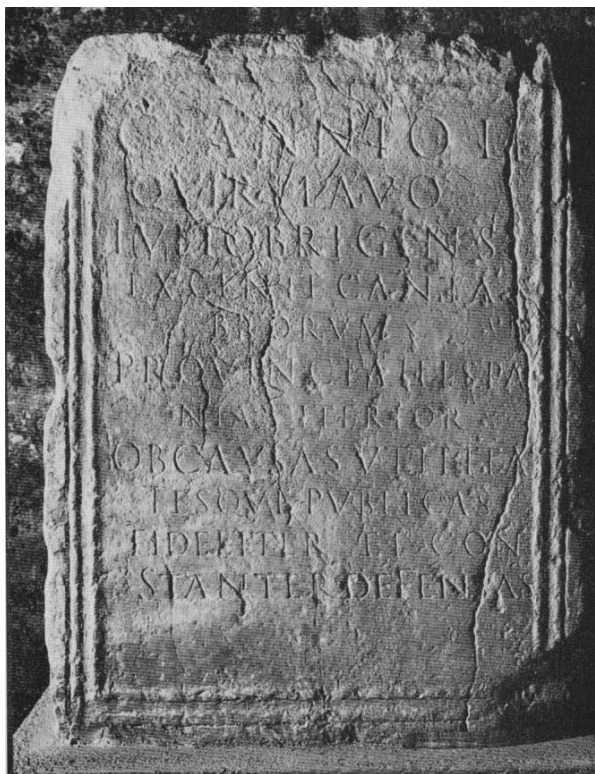 C ANNIO L F
QVIR FLAVO
IVLIOBRIGENS
EX GENTE CANTA
BRORVM
PROVINCIA HISPA
NIA CITERIOR
OB CAVSAS VTILITA
TESQVE PVBLICAS
FIDELITER ET CON
STANTER DEFENSAS